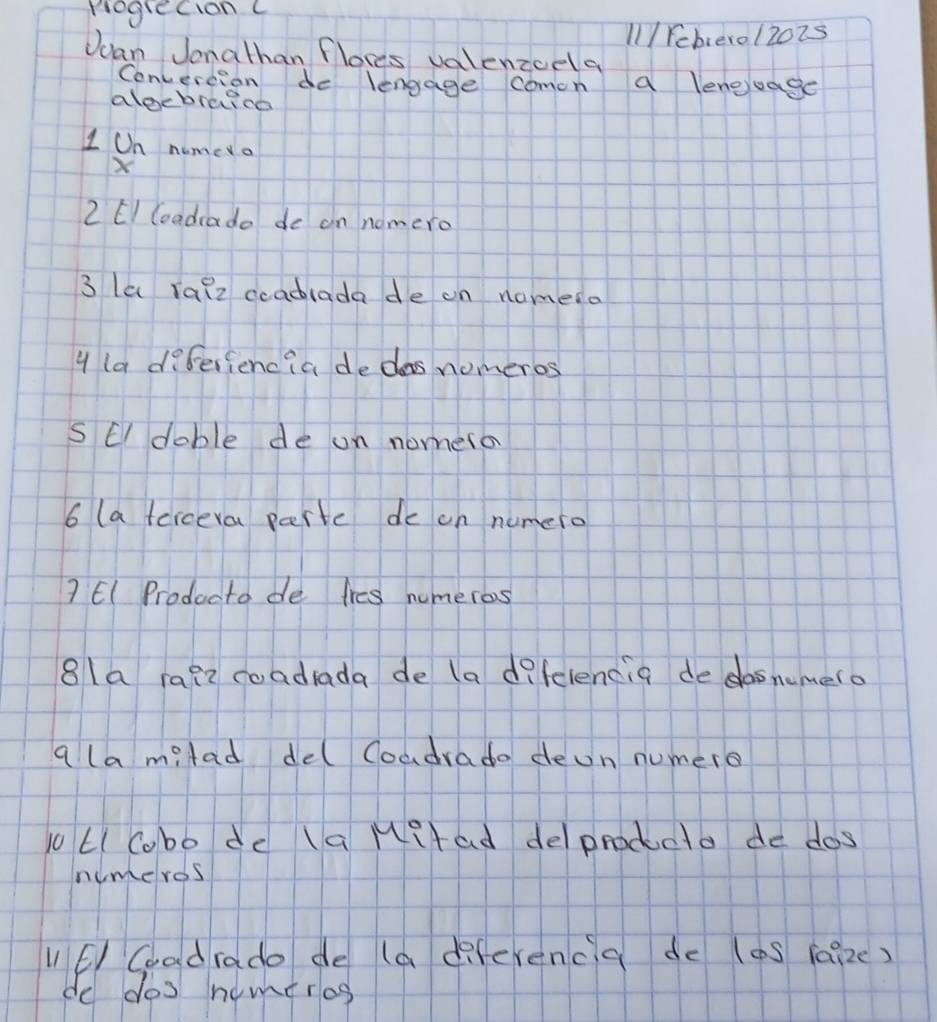 Progrecion L
11/Febrero/2025
Juan Jonathan flores valenzuela
Convercion de lengage comun a lenguage
algebraico
1 Un numero
x
2 El Coadrado de un numero
3 la raiz cuadrada de un numero
4 la diferiencia de dos numeros
5 El doble de un numero
6 la tercera parte de un numero
7 El Producto de tres numeros
8 la raiz cuadrada de la diferencia de dos numero
9 la mitad del Coadrado de un numero
10 El Cubo de la Mitad del producto de dos
numeros
11 El Cuadrado de la diferencia de las raizes
de dos numeros